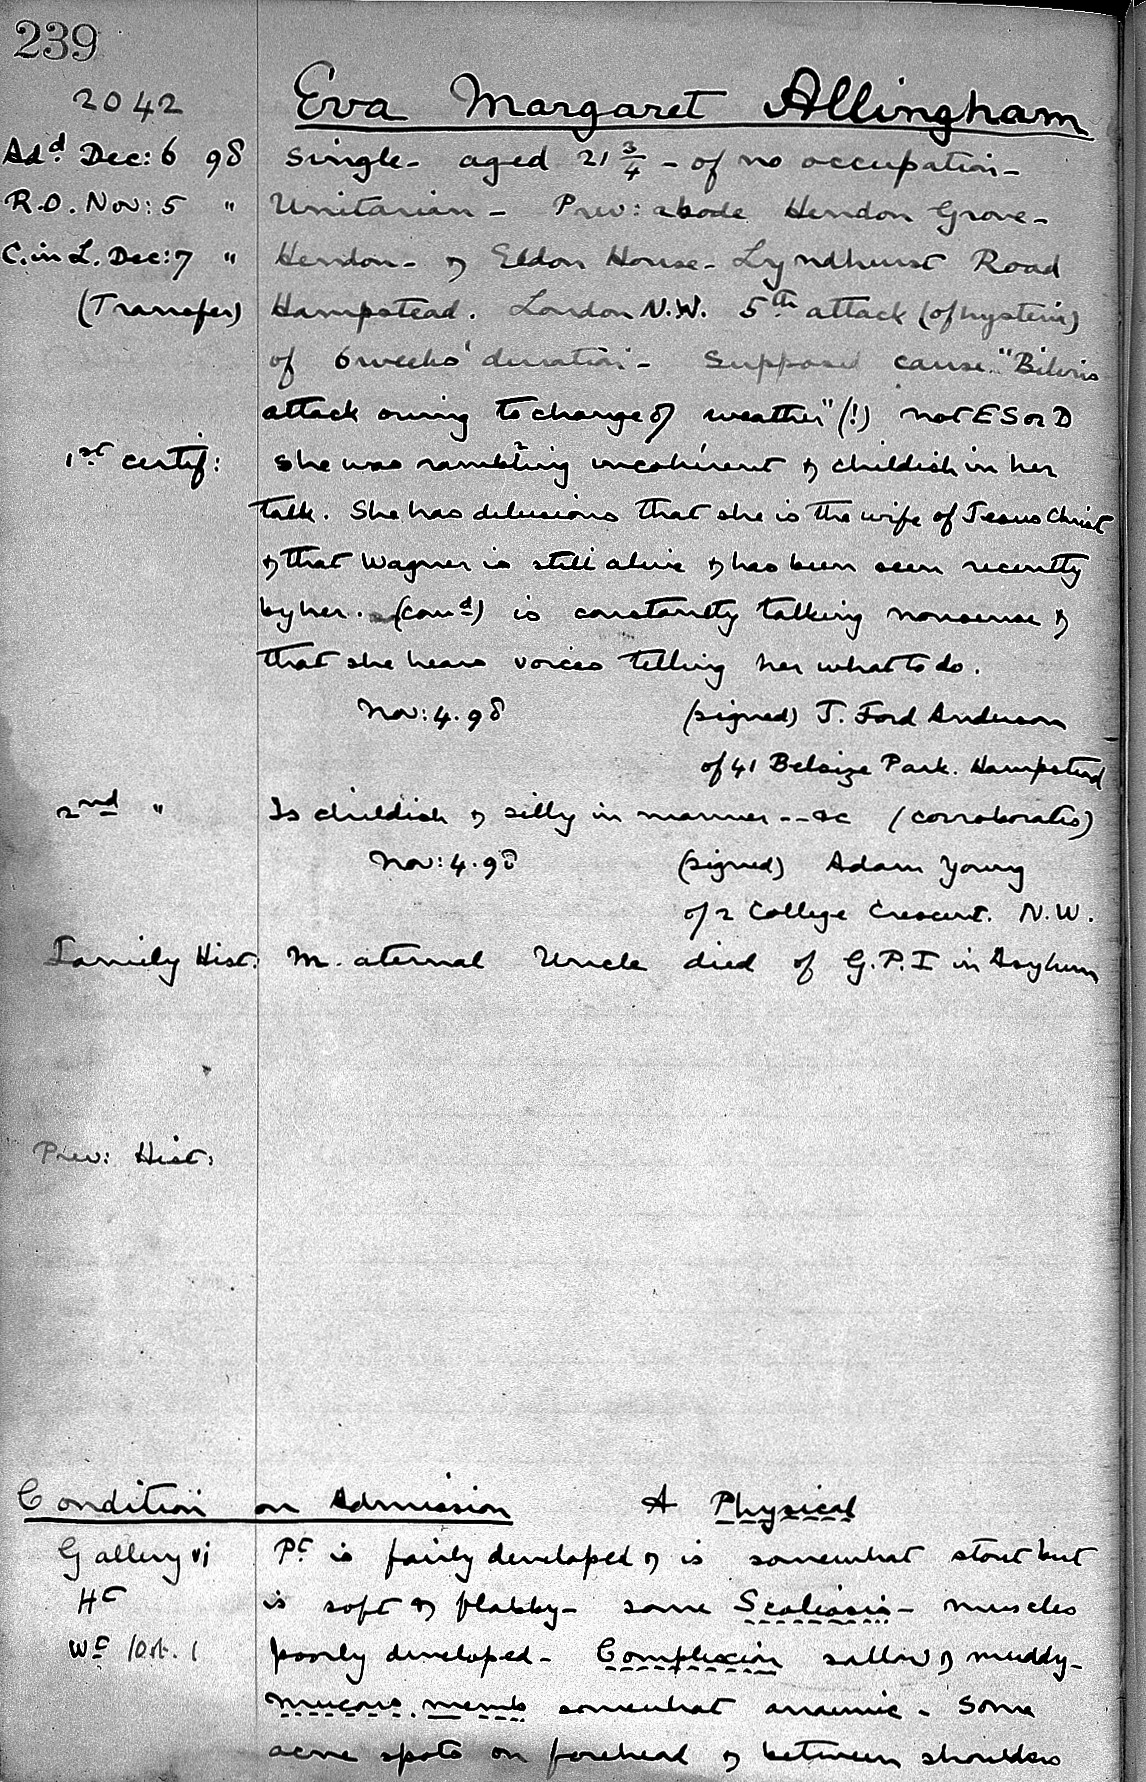 239
2042
Eva Margaret Allingham
Add. Dec: 6 98 Single - aged 21 3/4 - of no occupation -
R.O. Nov: 5 " Unitarian - Prev: abode Hendon Grove -
C. in L. Dec: 7 " Hendon - & Eldon House - Lyndhurst Road
(Transfer) Hampstead. London N.W. 5th attack (of hysteria)
of 6 weeks' duration - Supposed cause "Bilious
attack owing to change of weather" (!) not E S or D
1st certif: She was rambling incoherent & childish in her
talk. She has delusions that she is the wife of Jesus Christ
& that Wagner is still alive & has been seen recently
by her. (comd) is constantly talking nonsense &
that she hears voices telling her what to do.
Nov: 4. 98 (signed) J. Ford Anderson
of 41 Belsize Park. Hampstead
2nd " Is childish & silly in manner -- &c (corroborates)
Nov: 4. 98 (signed) Adam Young
of 2 College Crescent. N.W.
Family Hist: Maternal Uncle died of G.P.I in Asylum
Prev: Hist:
Condition on Admission A Physical
Gallery vi Pt is fairly developed & is somewhat stout but
Ht is soft & flabby - some Scoliosis - muscles
Wt poorly developed - Complexion sallow & muddy -
mucous. memb somewhat anaemic - Some
acne spots on forehead & between shoulders